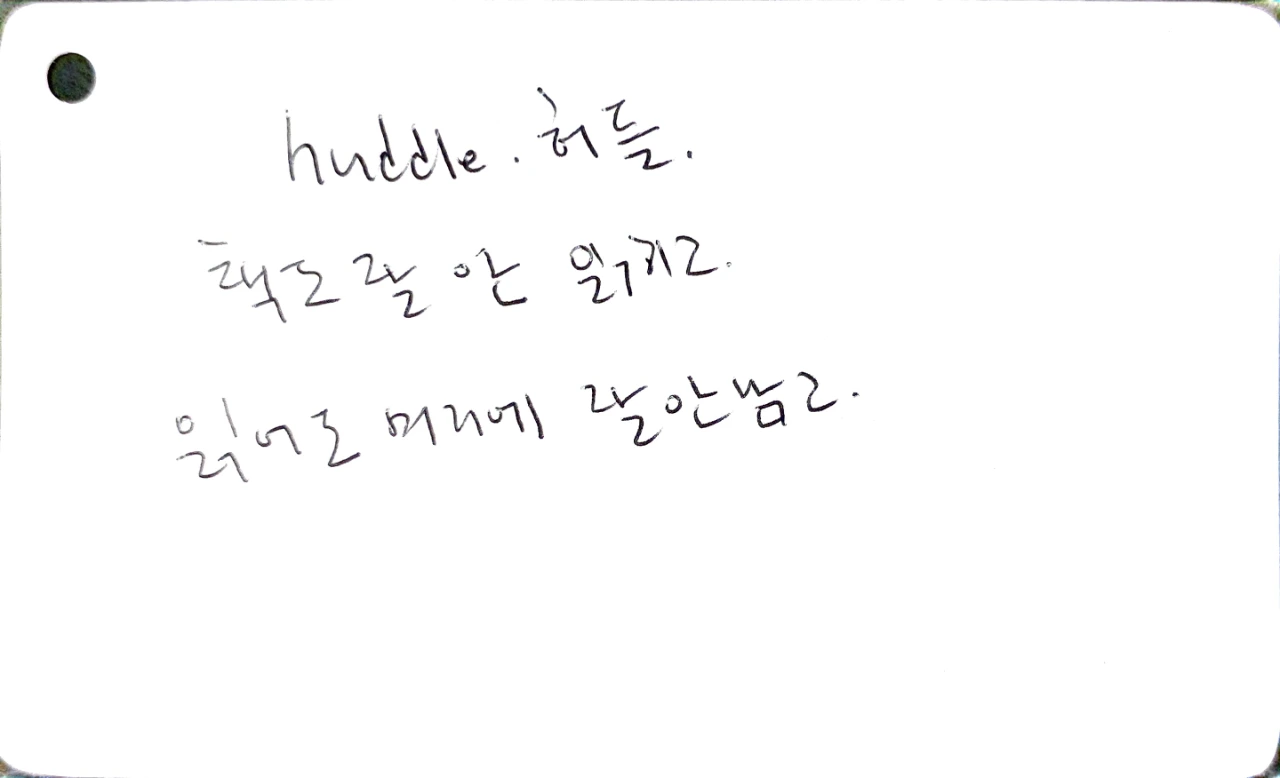 huddle. 허들.
책도 잘 안 읽히고.
읽어도 머리에 잘 안남고.